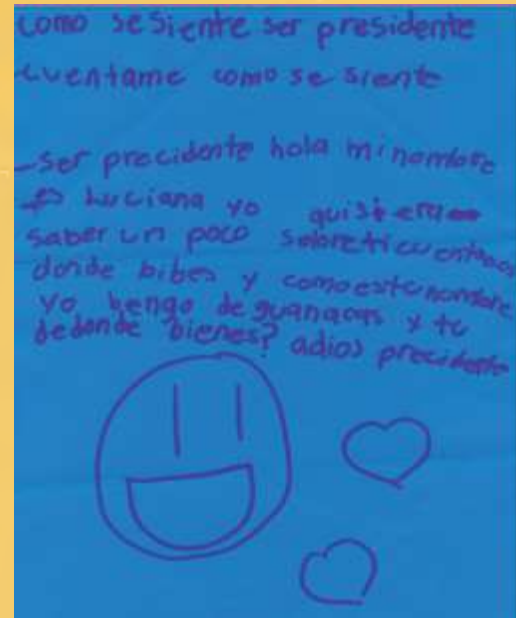 como se siente ser presidente
cuentame como se siente
-ser precidente hola mi nombre
es Luciana yo quisiera
saber un poco sobre ti cuentanos
donde bibes y como es tu nombre
yo bengo de guanacas y tu
dedonde bienes? adios precidente